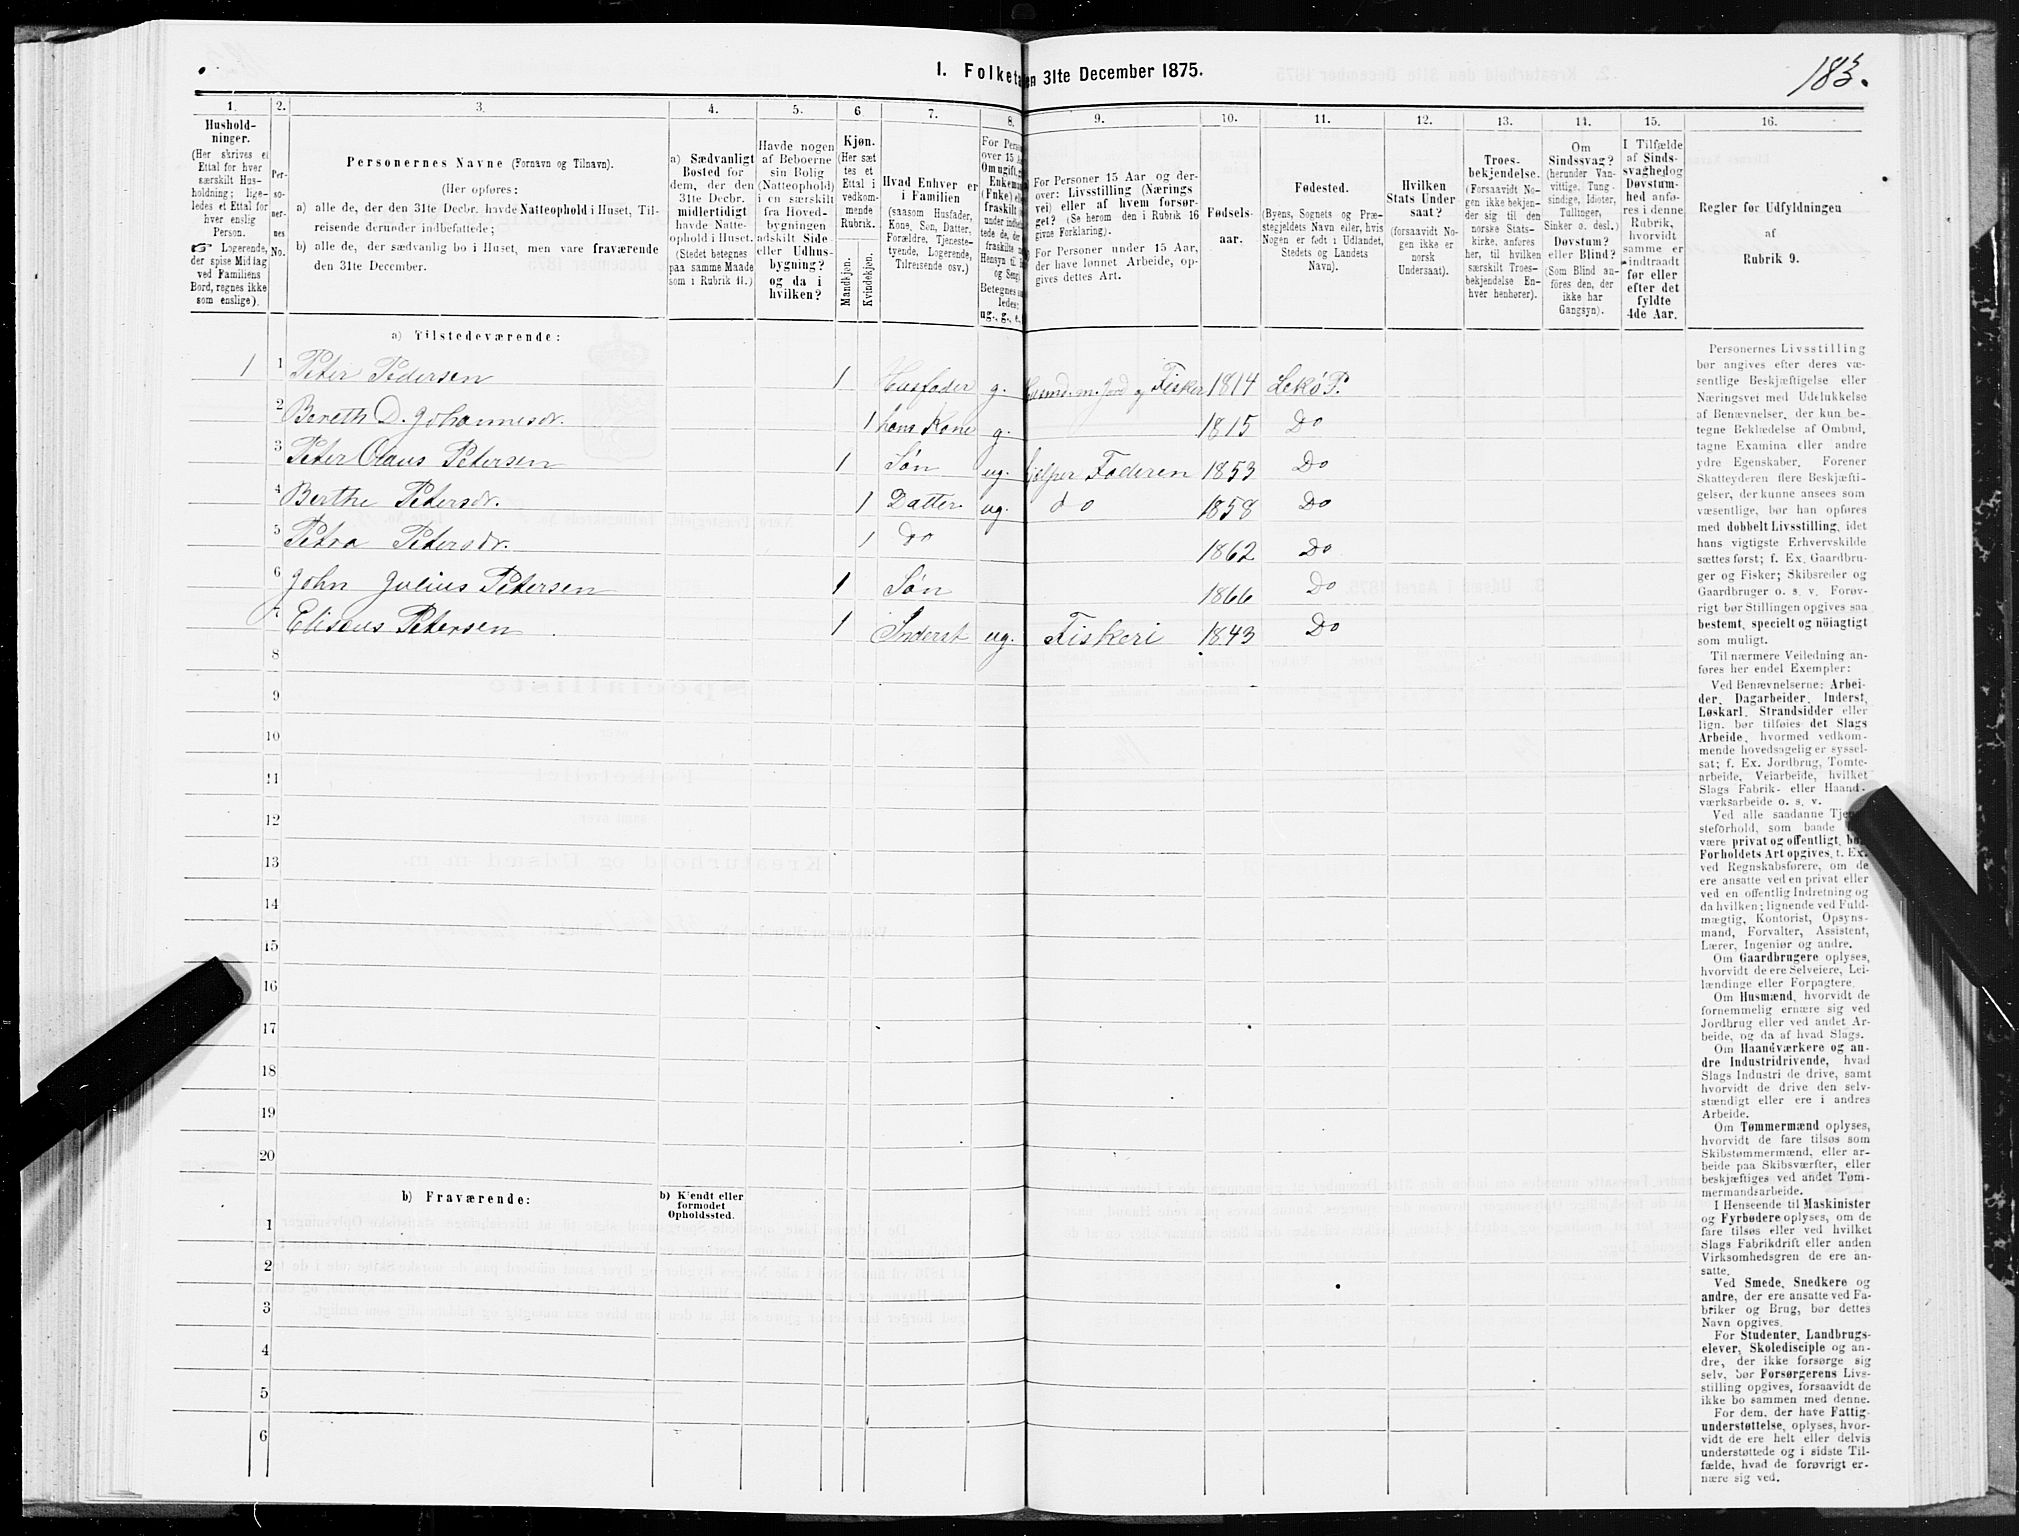 I. Folketa en 31te December 1875.
183.
1. 2. 3. 4. 5. 6 7. 8. 9. 10. 11. 12. 13. 14. 15. 16.
Hushold-
ninger.
(Her skrives et
Ettal for hver
særskilt Hus-
holdning; lige-
ledes et Ettal for
hver enslig
Person.
☞ Logerende,
der spise Middag
ved Familiens
Bord, regnes ikke
som enslige).
Per-
so-
ner-
nes
No.
Personernes Navne (Fornavn og Tilnavn).
(Her opføres:
a) alle de, der den 31te Decbr. havde Natteophold i Huset, Til-
reisende derunder indbefattede;
b) alle de, der sædvanlig bo i Huset, men vare fraværende
den 31te December.
a) Sædvanligt
Bosted for
dem, der den
31te Decbr.
midlertidigt
havde Natte-
ophold i Huset.
(Stedet betegnes
paa samme Maade
som i Rubrik 11.)
Havde nogen
af Beboerne
sin Bolig
(Natteophold)
i en særskilt
fra Hoved-
bygningen
adskilt Side-
eller Udhus-
bygning?
og da i
hvilken?
Kjøn.
(Her sæt
tes et
Ettal i
vedkom-
mende
Rubrik.
Mandkjøn.
Kvindekjøn.
Hvad Enhver er
i Familien
(saasom Husfader,
Kone, Søn, Datter,
Forældre, Tjeneste-
tyende, Logerende,
Tilreisende osv.)
For Pers
over 15 A
Om ugift, g
Enkem
(Enke) ell
fraskilt
ug., g., e.,
For Personer 15 Aar og der-
over: Livsstilling (Nærings
vei) eller af hvem forsør-
get? (Se herom den i Rubrik 16
givne Forklaring).
For Personer under 15 Aar,
der have lønnet Arbeide, op-
gives dettes Art.
Fødsels-
aar.
Fødested.
(Byens, Sognets og Præ-
stegjeldets Navn eller, hvis
Nogen er født i Udlandet,
Stedets og Landets
Navn).
Hvilken
Stats Under
saat?
(forsaavidt No-
gen ikke er
norsk
Undersaat).
Troes-
bekjendelse.
(Forsaavidt No-
gen ikke bekjen-
der sig til den
norske Stats-
kirke, anføres
her, til hvilken
særskilt Troes-
bekjendelse En-
hver henhører).
Om
Sindssvag?
(herunder Van-
vittige, Tung-
sindige, Idioter,
Tullinger,
Sinker o. desl.)
Døvstum?
eller Blind?
(Som Blind an-
føres den, der
ikke har
Gangsyn).
I Tilfælde
af Sinds-
svaghed og
Døvstum-
hed anfø-
res i denne
Rubrik,
hvorvidt
samme er
indtraadt
før eller
efter det
fyldte
4de Aar.
Regler for Udfyldningen
af
Rubrik 9.
a) Tilstedeværende:
1 1 Peter Pedersen 1 Husfader g. Husmd. m. Jord og Fisker 1814 Lekø P.
2 Bereth D. Johannesdr. 1 hans Kone g. 1815 Do
3 Peter Olaus Petersen 1 Søn ug. hjelper Faderen 1853 Do
4 Berthe Petersdr. 1 Datter ug. do 1858 Do
5 Petra Petersdr. 1 do 1862 Do
6 John Julius Petersen 1 Søn 1866 Do
7 Eliseus Petersen 1 Inderst ug. Fiskeri 1843 Do
8
9
10
11
12
13
14
15
16
17
18
19
20
b) Fraværende:
b) Kjendt eller
formodet
Opholdssted.
1
2
3
4
5
6
Personernes Livsstilling
bør angives efter deres væ-
sentlige Beskjæftigelse eller
Næringsvei med Udelukkelse
af Benævnelser, der kun be-
tegne Beklædelse af Ombud,
tagne Examina eller andre
ydre Egenskaber. Forener
Skatteyderen flere Beskjæfti-
gelser, der kunne ansees som
væsentlige, bør han opføres
med dobbelt Livsstilling, idet
hans vigtigste Erhvervskilde
sættes først; f. Ex. Gaardbru-
ger og Fisker; Skibsreder og
Gaardbruger o. s. v. Forøv-
rigt bør Stillingen opgives saa
bestemt, specielt og nöiagtigt
som muligt.
Til nærmere Veiledning an-
føres her endel Exempler:
Ved Benævnelserne: Arbei-
der, Dagarbeider, Inderst,
Løskarl, Strandsidder eller
lign. bør tilføies det Slags
Arbeide, hvormed vedkom-
mende hovedsagelig er syssel-
sat; f. Ex. Jordbrug, Tomte-
arbeide, Veiarbeide, hvilket
Slags Fabrik- eller Haand-
værksarbeide o. s. v.
Ved alle saadanne Tje
steforhold, som baade
være privat og offentligt, bør
Forholdets Art opgives, t. Ex.
ved Regnskabsførere, om de
ere ansatte ved en privat eller
ved en offentlig Indretning og
da hvilken; lignende ved Fuld-
mægtig, Kontorist, Opsyns-
mand, Forvalter, Assistent,
Lærer, Ingeniør og andre.
Om Gaardbrugere oplyses,
hvorvidt de ere Selveiere, Lei-
lændinge eller Forpagtere.
Om Husmænd, hvorvidt de
fornemmelig ernære sig ved
Jordbrug eller ved andet Ar-
beide, og da af hvad Slags.
Om Haandværkere og an-
dre Industridrivende, hvad
Slags Industri de drive, samt
hvorvidt de drive den selv-
stændigt eller ere i andres
Arbeide.
Om Tømmermænd oplyses,
hvorvidt de fare tilsøs som
Skibstømmermænd, eller ar-
beide paa Skibsværfter, eller
beskjæftiges ved andet Tøm-
mermandsarbeide.
I Henseende til Maskinister
og Fyrbødere oplyses, om de
fare tilsøs eller ved hvilket
Slags Fabrikdrift eller anden
Virksomhedsgren de ere an-
satte.
Ved Smede, Snedkere og
andre, der ere ansatte ved Fa-
briker og Brug, bør dettes
Navn opgives.
For Studenter, Landbrugs-
elever, Skoledisciple og an-
dre, der ikke forsørge sig
selv, bør Forsørgerens Livs-
stilling opgives, forsaavidt de
ikke bo sammen med denne.
For dem, der have Fattig-
understøttelse, oplyses, hvor-
vidt de ere helt eller delvis
understøttede og i sidste Til-
fælde, hvad de forøvrigt er-
nære sig ved.